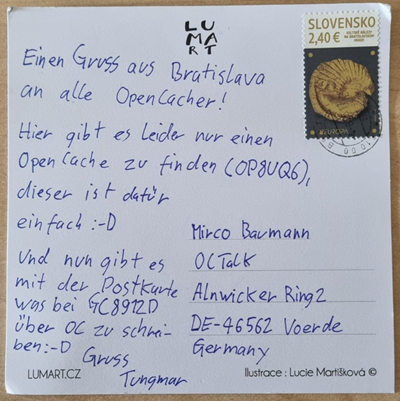 LU
MA
RT
SLOVENSKO
2,40 €
EUROPA
Einen Gruss aus Bratislava
an alle Opencacher!
Hier gibt es leider nur einen
Opencache zu finden (OP8UQ6),
dieser ist dafür
einfach :-D
Und nun gibt es
mit der Postkarte
was bei GC8912D
über OC zu schrei-
ben:-D
Gruss
Tungmar
Mirco Baumann
OCTalk
Alnwicker Ring 2
DE-46562 Voerde
Germany
LUMART.CZ
Ilustrace : Lucie Martišková ©